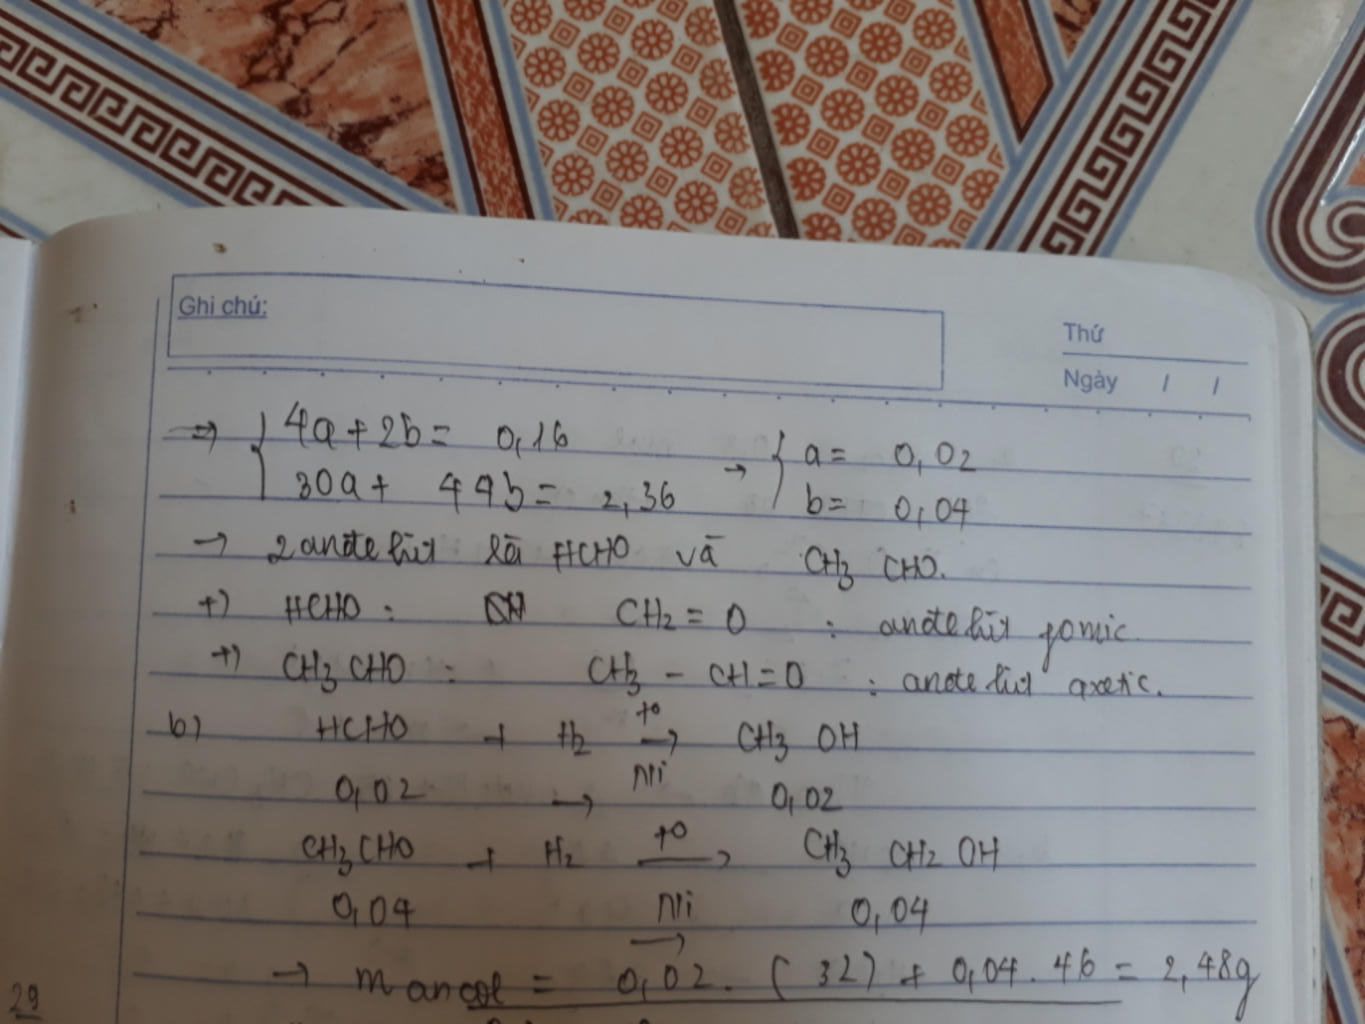 Ghi chú:
Thứ
Ngày / /
=> { 4a + 2b = 0,16 → { a = 0,02
30a + 44b = 2,36 b = 0,04
→ 2 anđehit là HCHO và CH3 CHO.
+) HCHO : CH2 = O : anđehit fomic.
+) CH3 CHO : CH3 - CH = O : anđehit axetic.
b) HCHO + H2 t° → Ni CH3 OH
0,02 → 0,02
CH3 CHO + H2 t° → Ni CH3 CH2 OH
0,04 → 0,04
→ m ancol = 0,02 . (32) + 0,04 . 46 = 2,48g
29